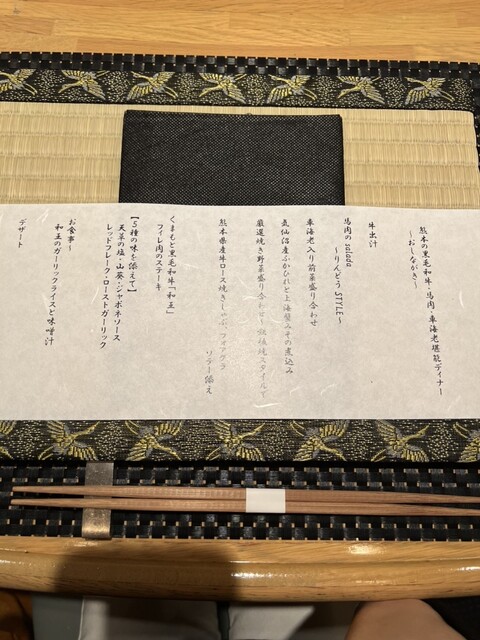 熊本の黒毛和牛・馬肉・車海老堪能ディナー
～おしながき～
牛出汁
馬肉の salada
～りんどう STYLE～
車海老入り前菜盛り合わせ
気仙沼産ふかひれと上海蟹みその煮込み
厳選焼き野菜盛り合わせ～鉄板焼スタイルで
熊本県産牛ロース焼きしゃぶ、フォアグラ
ソテー添え
くまもと黒毛和牛「和王」
フィレ肉のステーキ
【5種の味を添えて】
天草の塩・山葵・ジャポネソース
レッドフレーク・ローストガーリック
お食事～
和王のガーリックライスと味噌汁
デザート